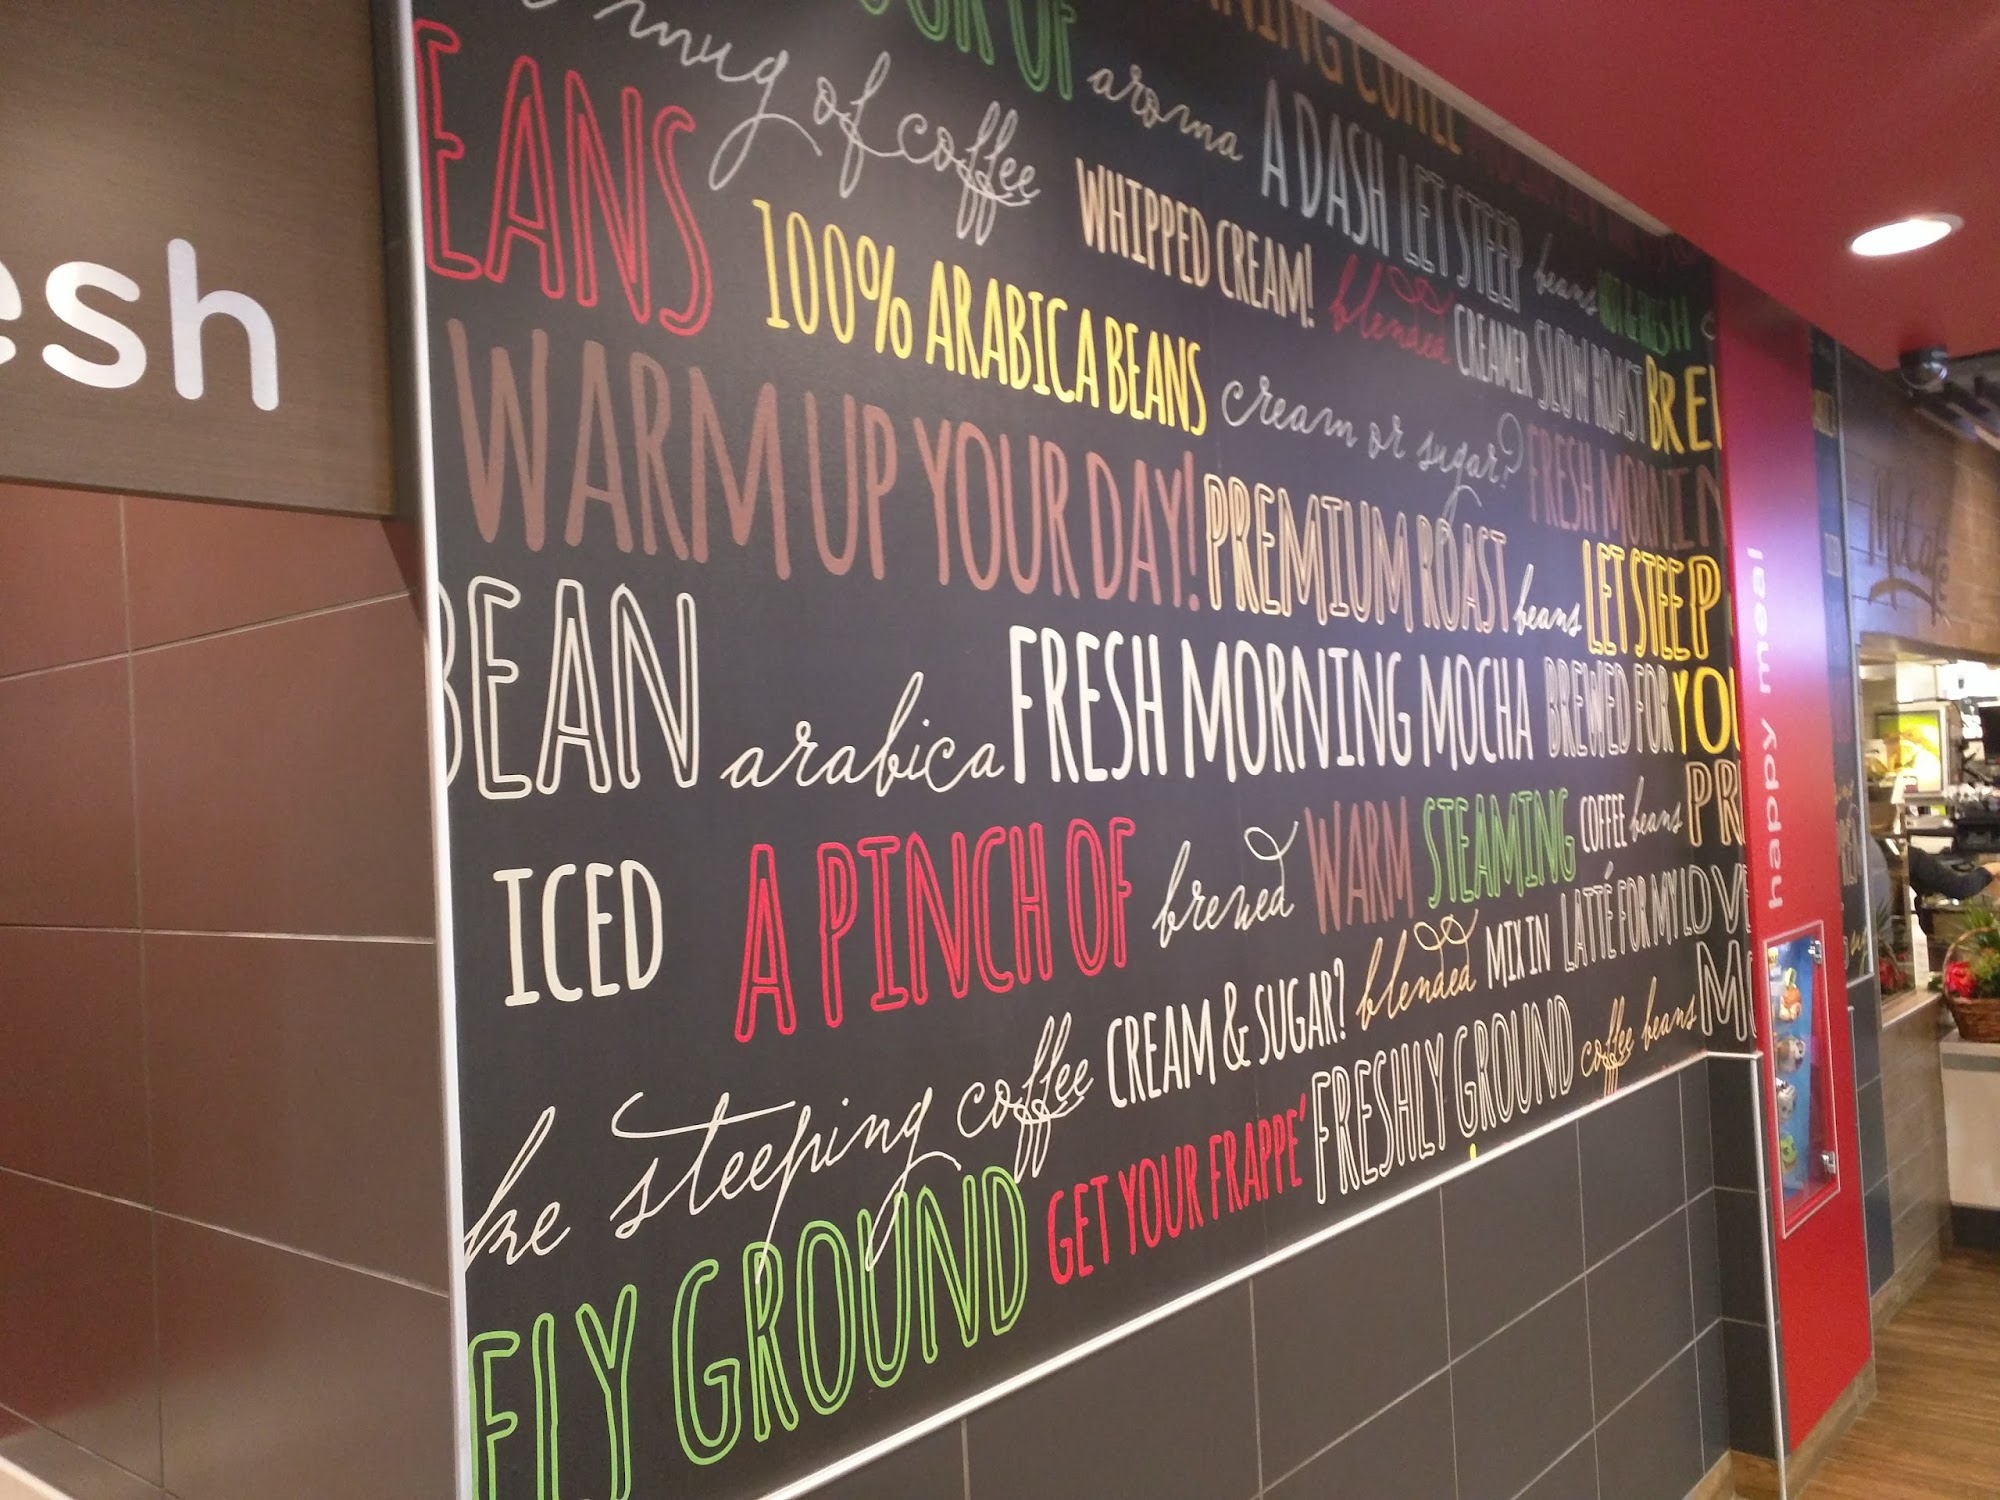 esh
OF aroma
mug of coffee
A DASH LET STEEP beans
EANS
WHIPPED CREAM! blended CREAMER SLOW ROAST BREW
100% ARABICA BEANS cream or sugar? FRESH MORNIN
WARM UP YOUR DAY! PREMIUM ROAST beans LET STEEP
BEAN arabica FRESH MORNING MOCHA BREWED FOR YOU
ICED A PINCH OF brewed WARM STEAMING COFFEE beans PR
ke steeping coffee CREAM & SUGAR? blended MIX IN LATTÉ FOR MY LOVE
ELY GROUND GET YOUR FRAPPE' FRESHLY GROUND coffee beans MO
happy meal
McCafé